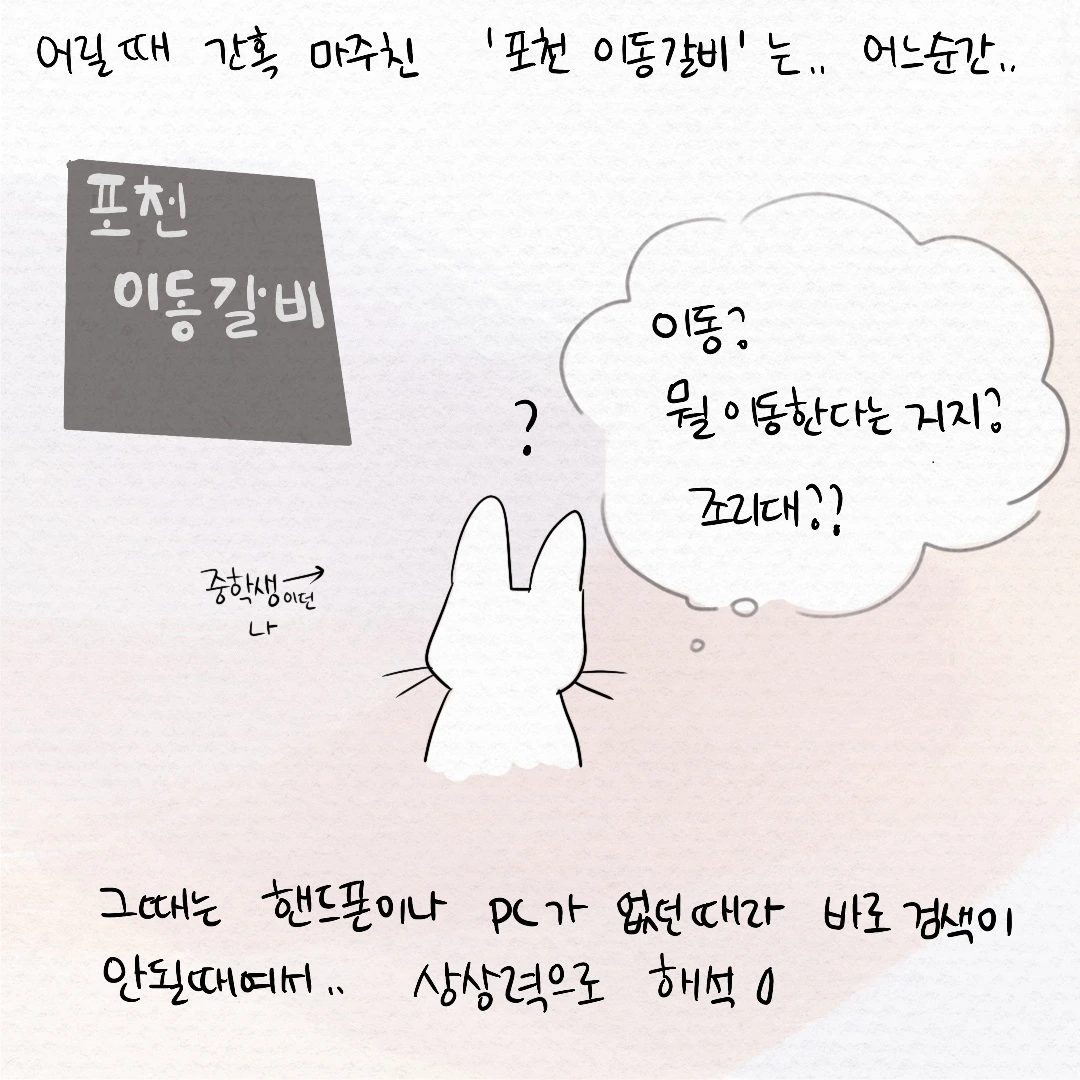 어릴때 간혹 마주친 '포천 이동갈비'는.. 어느순간..
포천
이동갈비
이동?
뭘 이동한다는 거지?
조리대??
?
중학생이던
나
그때는 핸드폰이나 PC가 없던때라 바로 검색이
안될때여서.. 상상력으로 해석